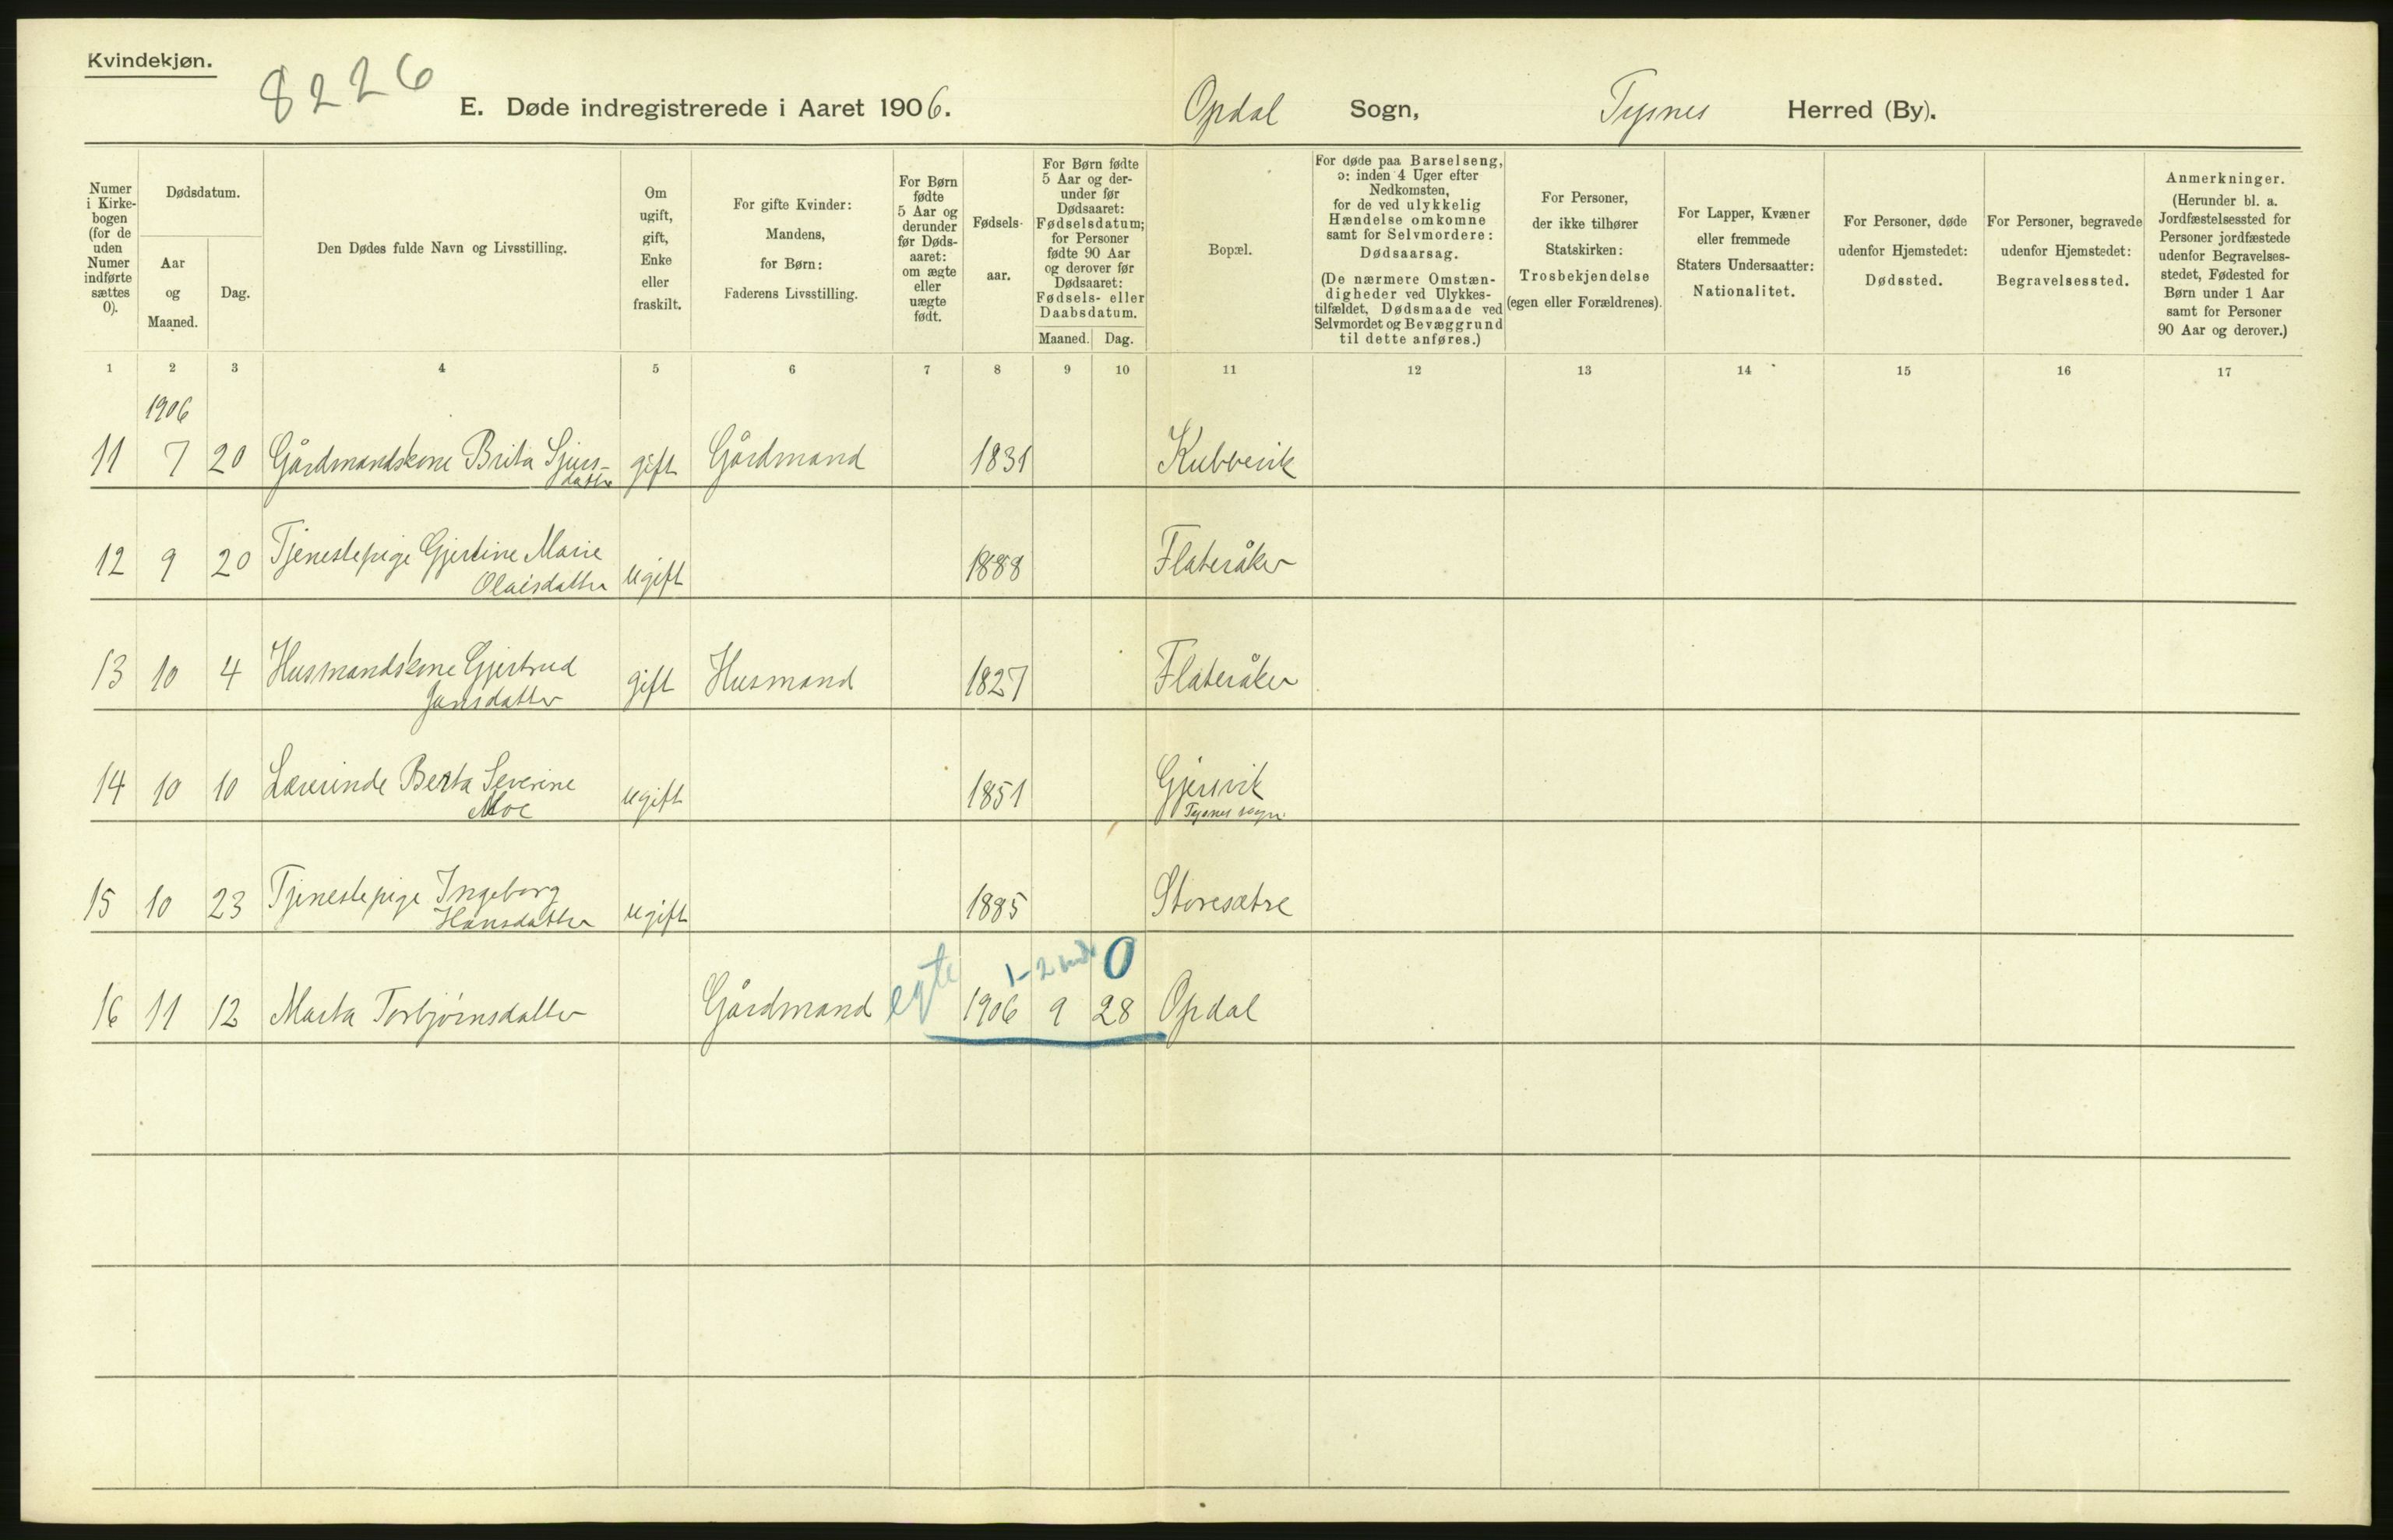 Kvindekjøn.
8226
E. Døde indregistrerede i Aaret 1906. Opdal Sogn, Tysnes Herred (By).
Numer
i Kirke-
bogen
(for de
uden
Numer
indførte
sættes
0).
Dødsdatum.
Aar
og
Maaned.
Dag.
Den Dødes fulde Navn og Livsstilling.
Om
ugift,
gift,
Enke
eller
fraskilt.
For gifte Kvinder:
Mandens,
for Børn:
Faderens Livsstilling.
For Børn
fødte
5 Aar og
derunder
før Døds-
aaret:
om ægte
eller
uægte
født.
Fødsels-
aar.
For Børn fødte
5 Aar og der-
under før
Dødsaaret:
Fødselsdatum;
for Personer
fødte 90 Aar
og derover før
Dødsaaret:
Fødsels- eller
Daabsdatum.
Maaned. Dag.
Bopæl.
For døde paa Barselseng,
ɔ: inden 4 Uger efter
Nedkomsten,
for de ved ulykkelig
Hændelse omkomne
samt for Selvmordere:
Dødsaarsag.
(De nærmere Omstæn-
digheder ved Ulykkes-
tilfældet, Dødsmaade ved
Selvmordet og Bevæggrund
til dette anføres.)
For Personer,
der ikke tilhører
Statskirken:
Trosbekjendelse
(egen eller Forældrenes).
For Lapper, Kvæner
eller fremmede
Staters Undersaatter:
Nationalitet.
For Personer, døde
udenfor Hjemstedet:
Dødssted.
For Personer, begravede
udenfor Hjemstedet:
Begravelsessted.
Anmerkninger.
(Herunder bl. a.
Jordfæstelsessted for
Personer jordfæstede
udenfor Begravelses-
stedet, Fødested for
Børn under 1 Aar
samt for Personer
90 Aar og derover.)
1 2 3 4 5 6 7 8 9 10 11 12 13 14 15 16 17
1906
11 7 20 Gårdmandskone Brita Sjurs- gift Gårdmand 1831 Kubbevik
datter
12 9 20 Tjenestepige Gjertine Marie
Olaisdatter ugift 1888 Flateråker
13 10 4 Husmandskone Gjertrud
Jansdatter gift Husmand 1827 Flateråker
14 10 10 Lærerinde Berta Severine
Moe ugift 1851 Gjersvik
Tysnes sogn.
15 10 23 Tjenestepige Ingeborg
Hansdatter ugift 1885 Storesætre
1-2 md. 0
16 11 12 Marta Torbjørnsdatter Gårdmand egte 1906 9 28 Opdal